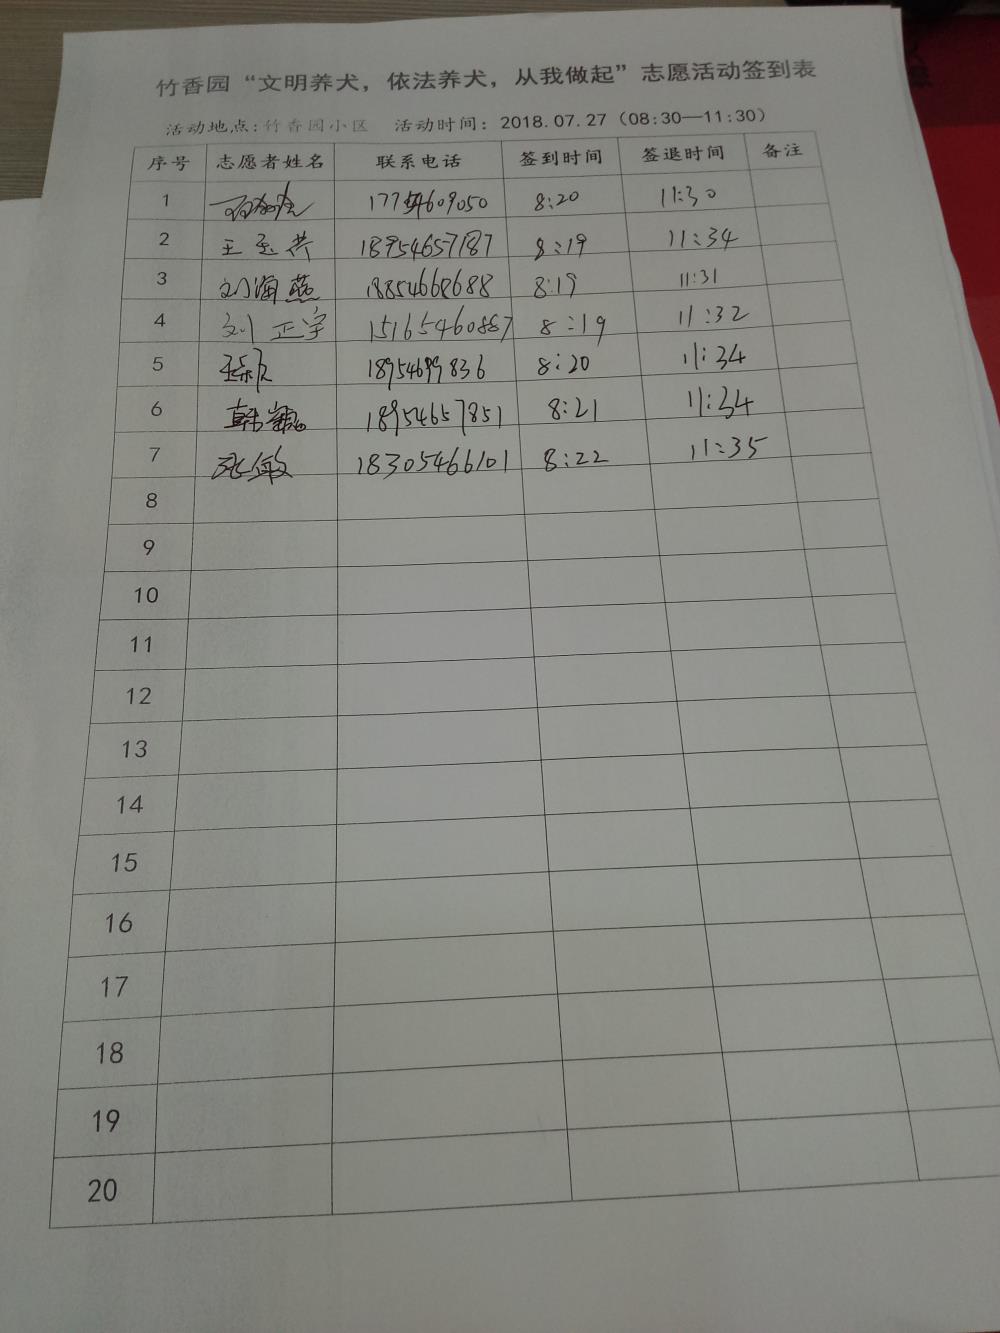 竹香园“文明养犬，依法养犬，从我做起”志愿活动签到表
活动地点:竹香园小区 活动时间：2018.07.27（08:30—11:30）
序号 志愿者姓名 联系电话 签到时间 签退时间 备注
1 8:20 11:30
2 王玉芸 18954657187 8:19 11:34
3 刘海燕 18854668688 8:19 11:31
4 刘正宇 15165460887 8:19 11:32
5 18954699836 8:20 11:34
6 18954657851 8:21 11:34
7 张敏 18305466101 8:22 11:35
8
9
10
11
12
13
14
15
16
17
18
19
20